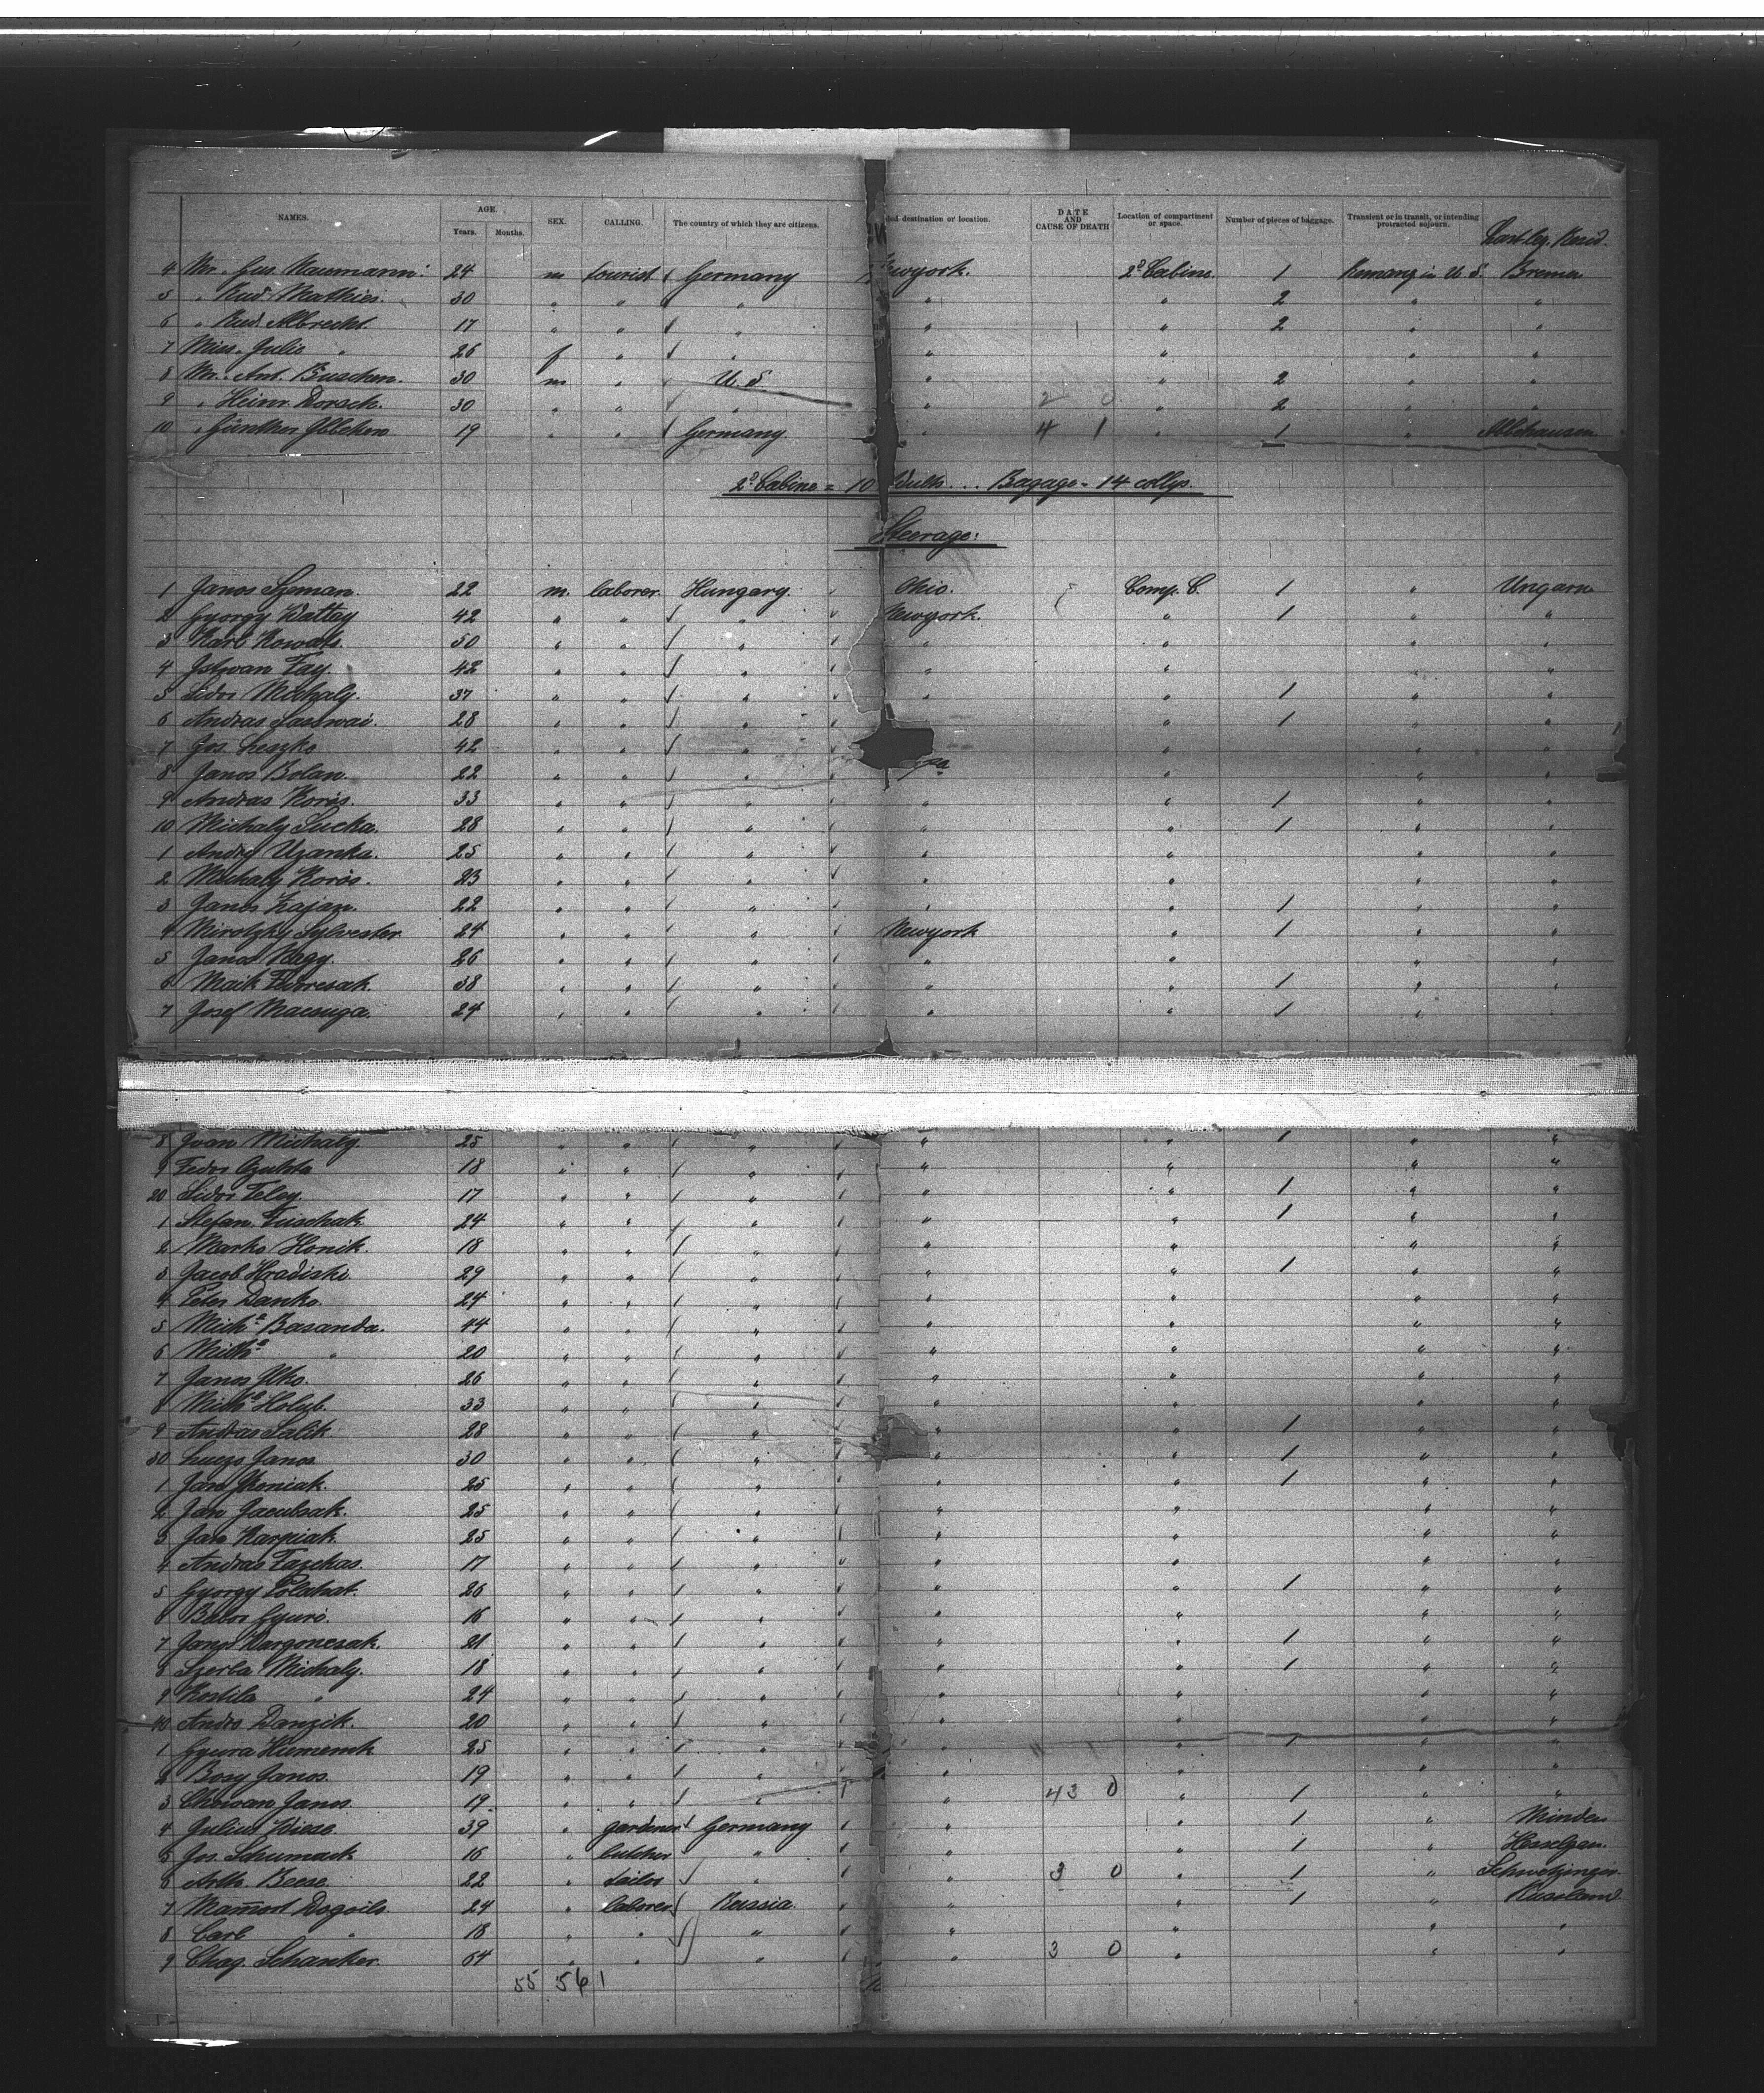 NAMES. AGE. Years. Months. SEX. CALLING. The country of which they are citizens. ded destination or location. DATE AND CAUSE OF DEATH Location of compartment or space. Number of pieces of baggage. Transient or in transit, or intending protracted sojourn. Last leg. Resid.
4 Mr. Gus. Naumann. 24 m tourist Germany Newyork. 2º Cabine 1 in U. S. Bremen
5 " Rud. Mathies. 30 " " " " " 2 " "
6 " Rud. Albrecht. 17 " " " " " 2 " "
7 Miss. Julie " 26 f " " " " " "
8 Mr. Ant. Buschen. 30 m " U. S. " " 2 " "
9 " Heinr. Dorsch. 30 " " " " 2 0 " 2 " "
10 " Günther 19 " " Germany. " 4 1 " 1 "
2º Cabine = 10 Adults... Bagage = 14 collys.
Steerage:
1 Janos Szeman. 22 m. laborer. Hungary. Ohio. Comp. C. 1 " Ungarn
2 Gyorgy Wattay 42 " " " Newyork. " 1 " "
3 Karl Kowats. 50 " " " " " " "
4 Istwan Fay. 42 " " " " " " "
5 Sidor Michaly. 37 " " " " " 1 " "
6 Andras 28 " " " " 1 " "
7 Jos. Leszko 42 " " " " " "
8 Janos Bolan. 22 " " " Pa " " "
9 Andras Korós. 33 " " " " " 1 " "
10 Michaly Sucka. 28 " " " " " 1 " "
1 Andry Uzanka. 25 " " " " " " "
2 Michaly Korós. 23 " " " " " " "
3 Janos Zajan. 22 " " " " " 1 " "
4 Mirotzky Sylvester. 24 " " " Newyork " 1 " "
5 Janos Nagy. 26 " " " " " " "
6 Maik 38 " " " " " 1 " "
7 Josef Macsuga. 24 " " " " " 1 " "
8 Ivan Michaly. 25 " " " " " 1 " "
9 Fedor 18 " " " " " " "
20 Sidor Feley. 17 " " " " " 1 " "
1 Stefan Fuschak 24 " " " " " 1 " "
2 Marko Honik. 18 " " " " " " "
3 Jacob Hradiski. 29 " " " " " 1 " "
4 Peter Danko. 24 " " " " " " "
5 Mich. Basanda. 44 " " " " " " "
6 Mich. " 20 " " " " " " "
7 Janos Ilko. 26 " " " " " " "
8 Mich. Holub. 33 " " " " " " "
9 Andras Salik 28 " " " " " 1 " "
30 Janos 30 " " " " " 1 " "
1 Jan 25 " " " " " 1 " "
2 Jan Jacubsak. 25 " " " " " " "
3 Jan Karpiak. 25 " " " " " " "
4 Andras Fazekas. 17 " " " " " " "
5 Gyorgy Polachat. 26 " " " " " 1 " "
6 Gyuró. 16 " " " " " " "
7 Janos 21 " " " " " 1 " "
8 Szerba Michaly. 18 " " " " " 1 " "
9 Kostila " 24 " " " " " " "
40 Andro Danzik. 20 " " " " " " "
1 Gyura 25 " " " " " 1 " "
2 Bosy Janos. 19 " " " " " " "
3 Janos. 19. " " " " 43 0 " 1 " "
4 Julius Wiese 39 " gardener Germany " " 1 " Minden
5 Jos. Schumack 16 " butcher " " " 1 "
6 Arth. Beese. 22 " tailor " " 3 0 " 1 " Schwetzingen
7 24 " laborer Russia. " " 1 " Russland
8 Carl " 18 " " " " " " "
9 Chag. Schanker. 64 " " " " 3 0 " " "
55 56 1